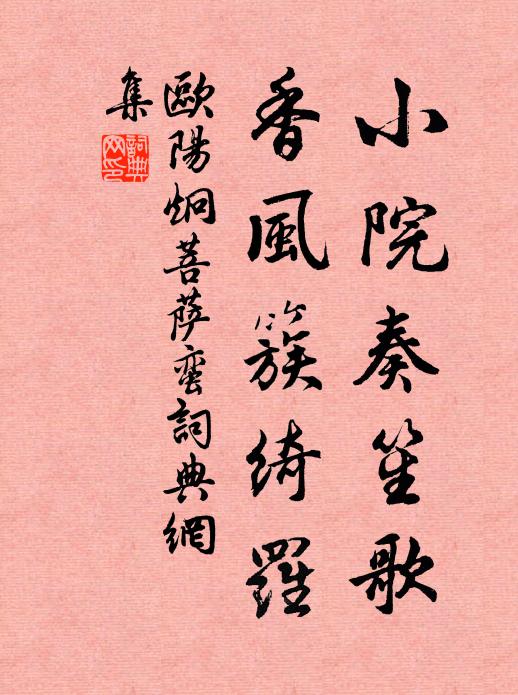 小院奏笙歌
香風簇綺羅
歐陽炯菩薩蠻詞典網
集
詞典
网印